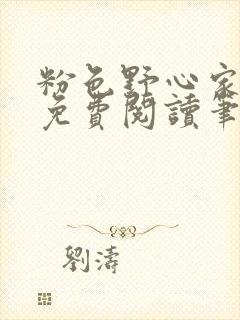 粉色野心家
免費閱讀筆
劉濤